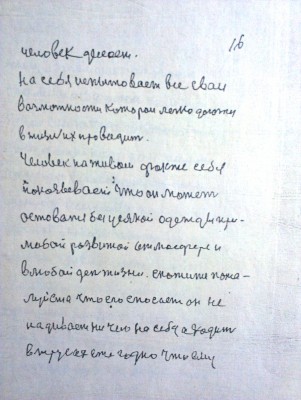 16
человек делает.
На себя испытовает все сваи
вазможности которои легко
в жизних проводит.
Человек на живом факте себя
показывает что он может
оставатся без усякой одежды при
любой развитой атмосфере и
в любой ден жизни. скажите пожа-
луйста кто его спосает он не
надивает ни чего на себя а ходит
в трусах ежегодно